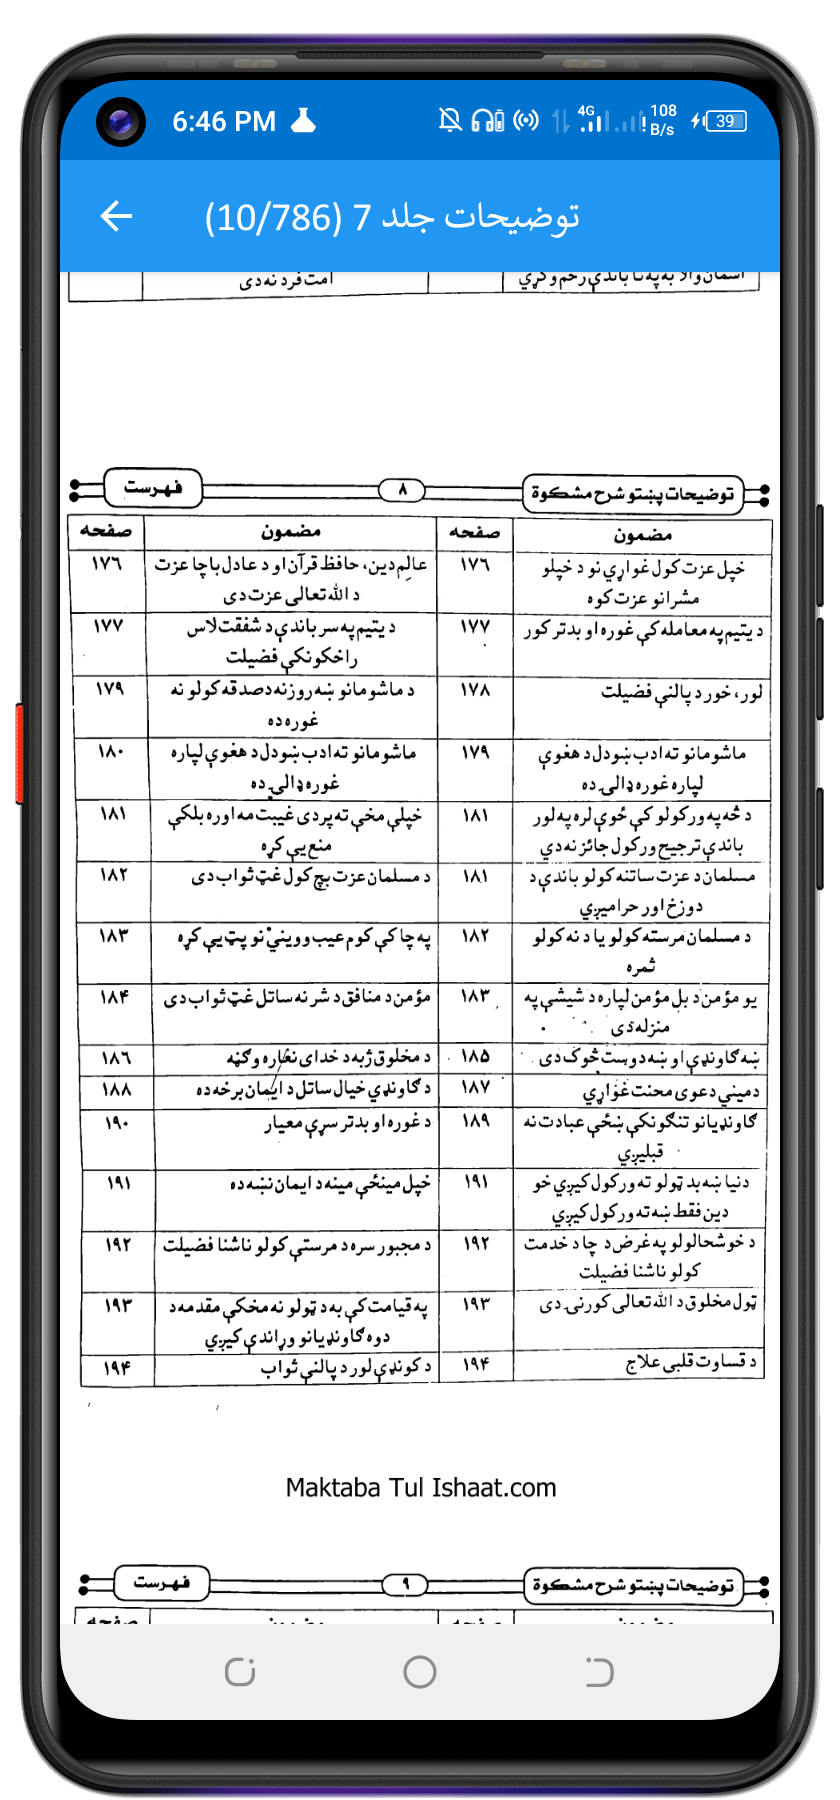 6:46 PM 4G 108 B/s 39
توضیحات جلد 7 (10/786)
امت فرد نه دی
توضیحات پښتو شرح مشکوة ٨ فهرست
مضمون صفحه مضمون صفحه
خپل عزت کول غواړي نو د خپلو ١٧٦ عالِم دین، حافظ قرآن او د عادل باچا عزت ١٧٦
مشرانو عزت کوه د الله تعالی عزت دی
د یتیم په معامله کې غوره او بدتر کور ١٧٧ د یتیم په سر باندې د شفقت لاس ١٧٧
راخکونکې فضیلت
لور، خور د پالنې فضیلت ١٧٨ د ماشومانو ښه روزنه د صدقه کولو نه ١٧٩
غوره ده
ماشومانو ته ادب ښودل د هغوې ١٧٩ ماشومانو ته ادب ښودل د هغوې لپاره ١٨٠
لپاره غوره ډالۍ ده غوره ډالۍ ده
د څه په ورکولو کې ځوې لره په لور ١٨١ خپلې مخې ته پردی غیبت مه اوره بلکې ١٨١
باندې ترجیح ورکول جائز نه دي منع یې کړه
مسلمان د عزت ساتنه کولو باندې د ١٨١ د مسلمان عزت بچ کول غټ ثواب دی ١٨٢
دوزخ اور حرامیږي
د مسلمان مرسته کولو یا د نه کولو ١٨٢ په چا کې کوم عیب ووینې نو پټ یې کړه ١٨٣
ثمره
یو مؤمن د بل مؤمن لپاره د شیشې په ١٨٣ مؤمن د منافق د شر نه ساتل غټ ثواب دی ١٨۴
منزله دی
ښه ګاونډې او ښه دوست څوک دی ١٨۵ د مخلوق ژبه د خدای نغاره وګڼه ١٨٦
د مینې دعوی محنت غواړي ١٨٧ د ګاونډي خیال ساتل د ایمان برخه ده ١٨٨
ګاونډیانو تنګونکې ښځې عبادت نه ١٨٩ د غوره او بدتر سړي معیار ١٩٠
قبلیږي
دنیا ښه بد ټولو ته ورکول کیږي خو ١٩١ خپل مینځې مینه د ایمان نښه ده ١٩١
دین فقط ښه ته ورکول کیږي
د خوشحالولو په غرض د چا د خدمت ١٩٢ د مجبور سره د مرستې کولو ناشنا فضیلت ١٩٢
کولو ناشنا فضیلت
ټول مخلوق د الله تعالی کورنۍ دی ١٩٣ په قیامت کې به د ټولو نه مخکې مقدمه د ١٩٣
دوه ګاونډیانو وړاندې کیږي
د قساوت قلبی علاج ١٩۴ د کونډې لور د پالنې ثواب ١٩۴
Maktaba Tul Ishaat.com
توضیحات پښتو شرح مشکوة ٩ فهرست